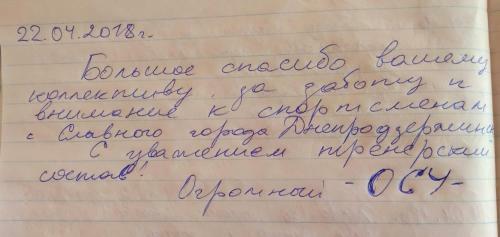 22.04.2018г.
Большое спасибо вашему
коллективу за заботу и
внимание к спортсменам
с Славного города Днепродзержинс
С уважением тренерский
состав!
Огромный -ОСУ-